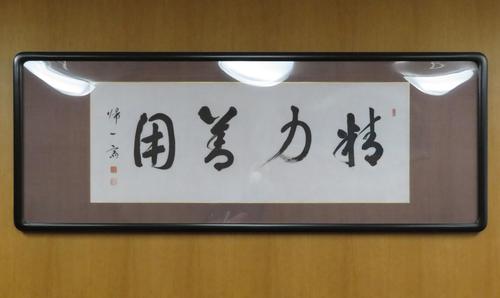 精力善用
帰一斎